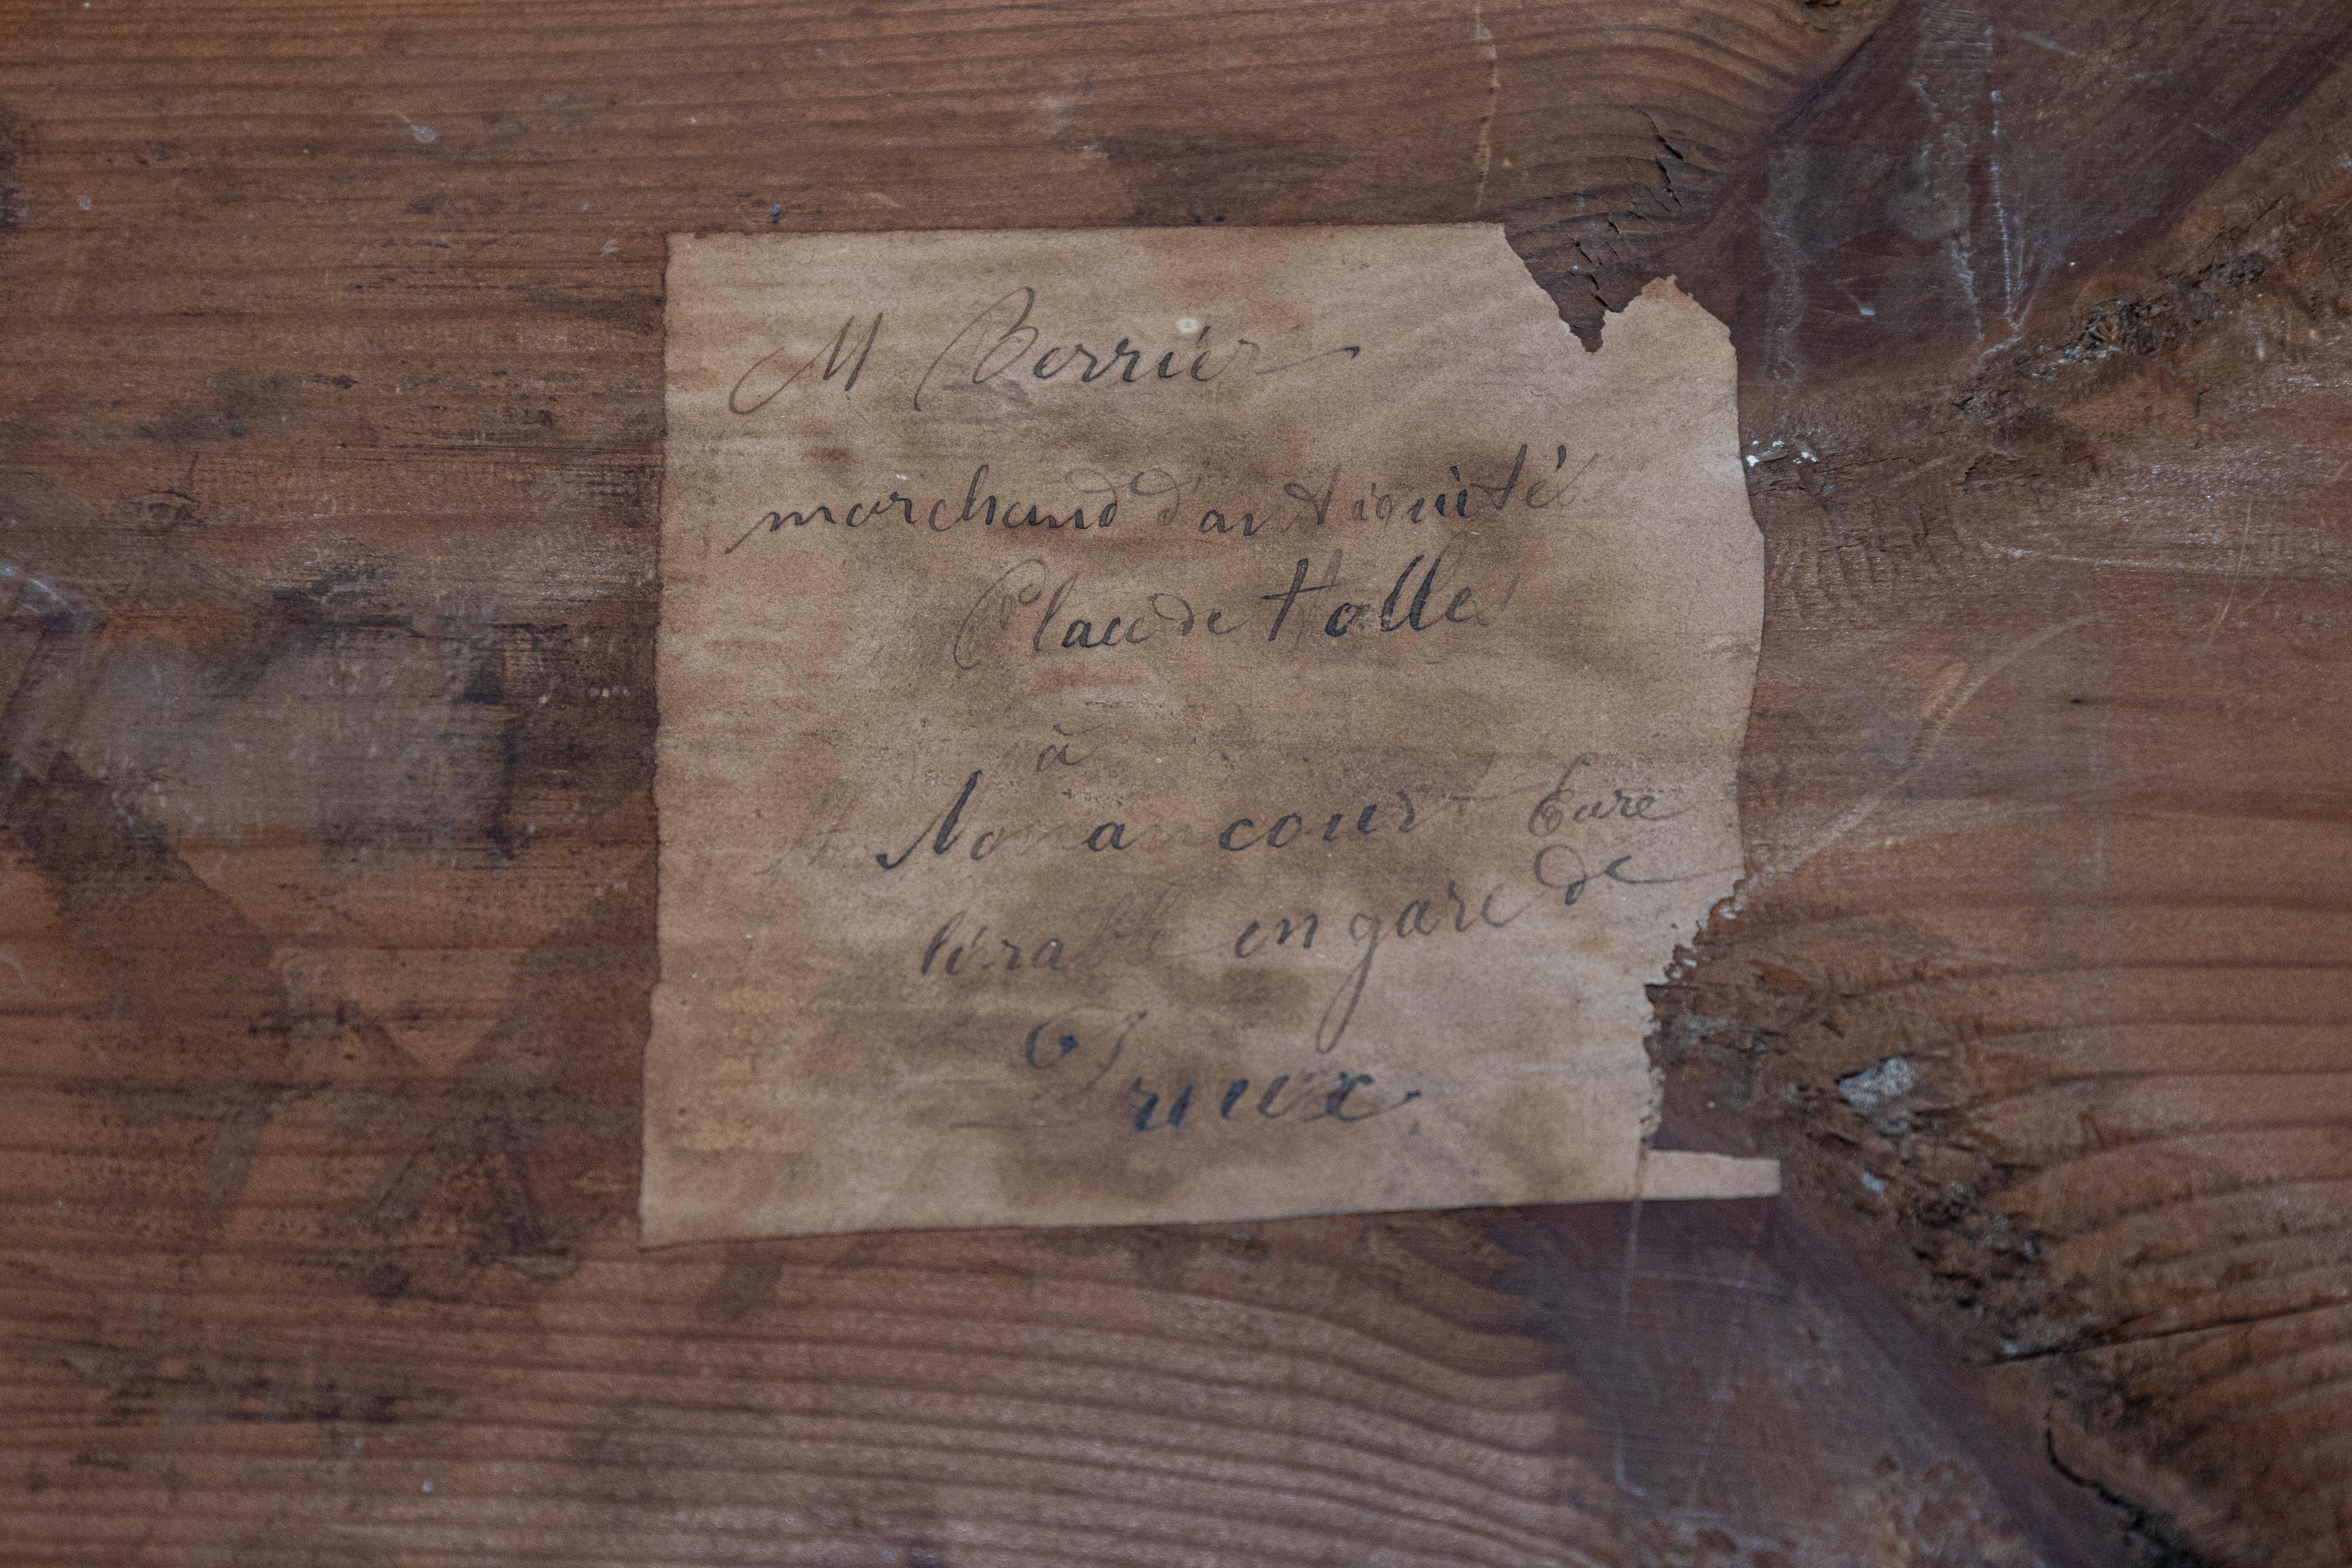 M Berrier
marchand d'antiquités
Place de Halle
à
Nonancourt Eure
livrable en gare de
Dreux